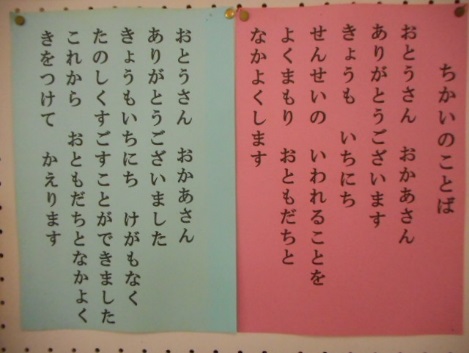 ちかいのことば
おとうさん　おかあさん
ありがとうございます
きょうも　いちにち
せんせいの　いわれることを
よくまもり　おともだちと
なかよくします
おとうさん　おかあさん
ありがとうございました
きょうもいちにち　けがもなく
たのしくすごすことができました
これから　おともだちとなかよく
きをつけて　かえります